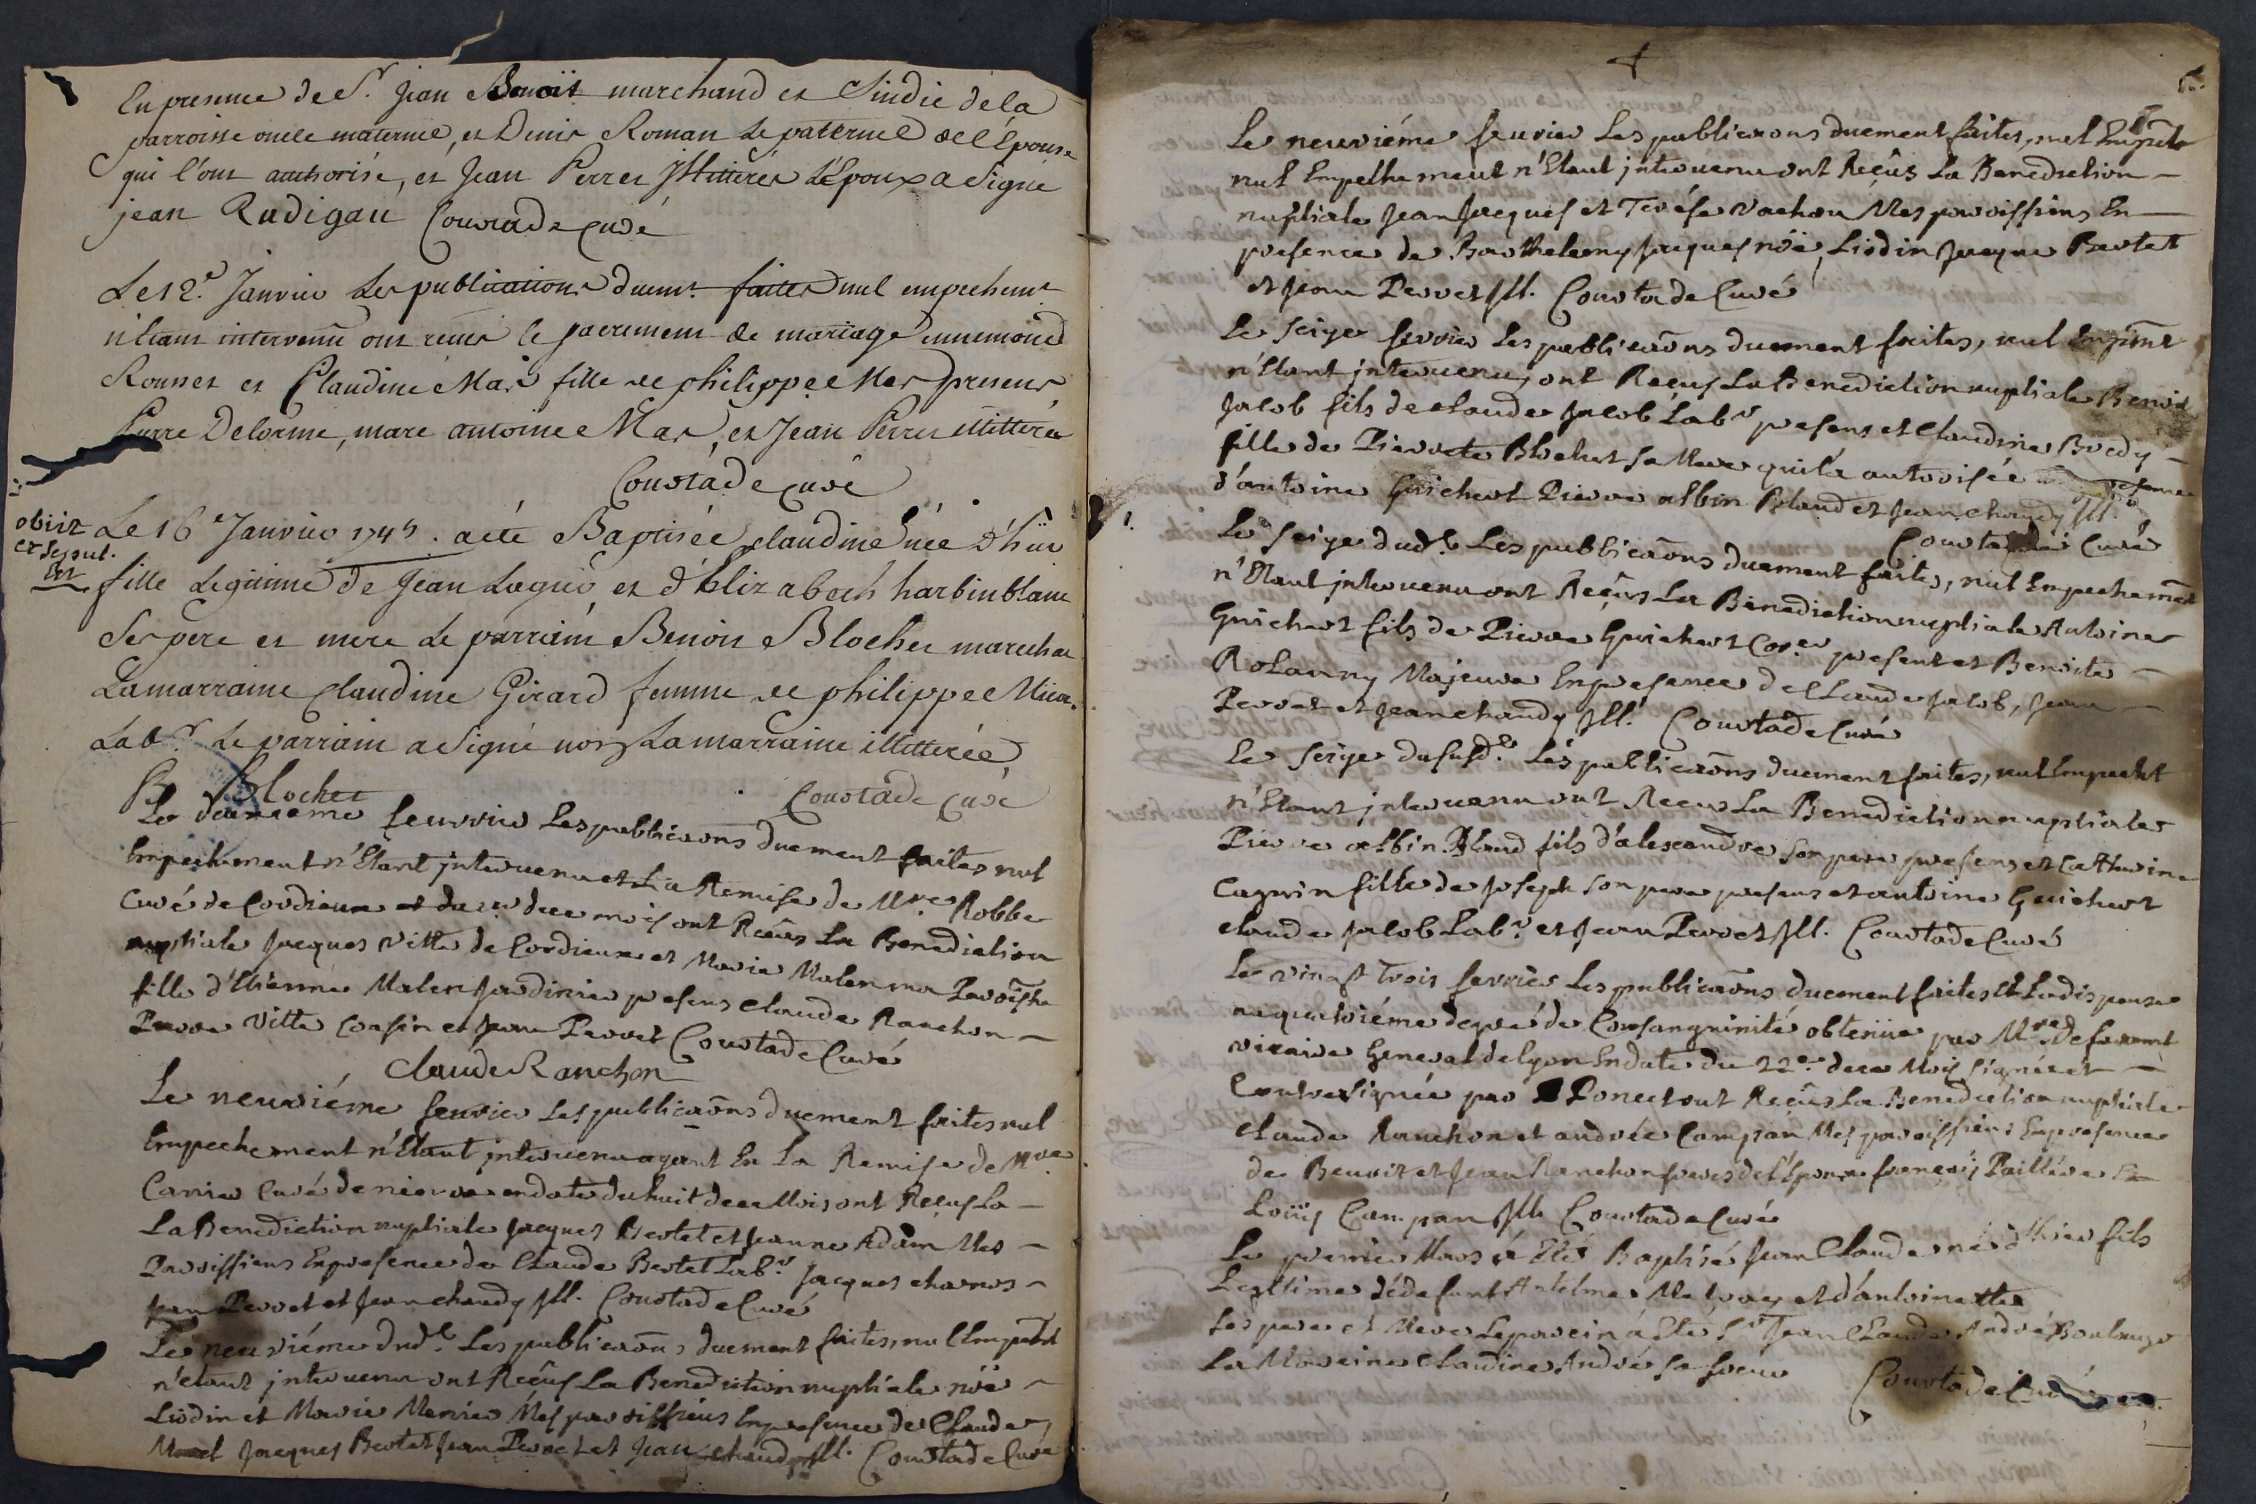 En presence de Sr. Jean Benoit marchand et Sindic de la
parroisse oncle maternel, et Denis Roman le paternel de l'Epouse
qui l'ont authorisé, et Jean Perret Illitteré L'Epoux a Signé
jean Radigau Courtade curé
Le 12e. Janvier Les publications duemt. faites nul empechemt.
n'etant intervenu ont recus le sacrement de mariage ennemond
Rousset et Claudine Mas fille de philippe Mas presens
Pierre Delorme, marc antoine Mas, et Jean Perret illitterés
Courtade curé
obiit
et sepul.
est
Le 16e Janvier 1745. a été Baptisée claudine née d'hier
fille Legitime de Jean Laguer et d'Elizabeth harbinblanc
Ses pere et mere Le parrain Benoit Blochet marechal
La marraine claudine Girard femme de philippe
Labr. Le parrain a Signé non La marraine illitterée
B Blochet Courtade curé
Le deuxieme feuvrier Les publications duement faites nul
Empechement n'Etant intervenu et La Remise de Mre. Robbe
Curé de Cordieux du de ce mois ont Reçus La Benediction
nuptiale Jacques Vitte de Cordieux et Marie Malen ma Paroiss.
fille d'Etienne Malen Jardinier presens Claude Ranchon
Pierre Vitte Cousin et Jean Perret Courtade Curé
Claude Ranchon
Le neuviéme feuvrier Les publications duement faites nul
Empechement n'Etant intervenu ayant Eu La Remise de Mre
Carrier Curé de en date du huit de ce Mois ont Reçus La
La Benediction nuptiale Jacques Bertet et Jeanne Adam Mes
Paroissiens En presence de Claude Bertet Labr. Jacques
Jean Perret et Jean chaudy Ill. Courtade Curé
Le neuviéme dud.t Les publications duement faites, nul Emp
n'étant intervenu ont Reçus La Benediction nuptiale noë
Liodin et Marie Mercier Mes paroissiens En presence de Claude
Jacques Bertet Jean Perret et Jean chaudy Ill. Courtade Curé
Le neuviéme feuvrier Les publications duement faites, nul
nul Empechement n'Etant intervenu ont Reçus La Benediction
nuptiale Jean Jacques et Terése Vachon Mes paroissiens En
presence de Barthelemy Jacques noë Liodin Jacque Bertet
et Jean Perret Ill. Courtade Curé
Le Seize fevrier Les publications duement faites, nul
n'Etant intervenu, ont Reçus La Benediction nuptiale Benoit
Jacob fils de claude Jacob Labr presens et Claudine Bredy
fille de Pierrette Blochet Sa Mere qui l'a autorisée
d'antoine Guichert Pierre albin Bland et Jean chaudy Ill.
Courtade Curé
Le Seize dud.t Les publications duement faites, nul Empechement
n'Etant intervenu ont Reçus La Benediction nuptiale Antoine
Guichert fils de Pierre Guichert present et Benoite
Rolanny Majeure En presence de Claude Jacob, Jean
Perret et Jean chaudy Ill. Courtade Curé
Le Seize du susd.t Les publications duement faites, nul Empecht
n'Etant intervenu ont Recus La Benediction nuptiale
Pierre albin Bland fils d'alexandre Son pere presens et Catherine
Cagnin fille de Joseph Son pere presens et antoine Guichert
claude Jacob Labr. et Jean Perret Ill. Courtade Curé
Le vingt Trois fevrier Les publications duement faites Et La dispense
au quatriéme degré de Consanguinité obtenüe par Mre.
vicaire General de Lyon En date du 22e. de ce Mois Signée et
Contresignée par Poncet ont Reçus La Benediction nuptiale
claude Ranchon et andrée Campan Mes paroissiens En presence
de Benoit et Jean Ranchon freres de l'Epoux françois Paillere Et
Loüis Campan Ill. Courtade Curé
Le premier Mars à Eté Baptisé Jean Claude né d'hier fils
Legitime dédefunt Antelme et d'antoinette
Ses pere et Mere Le parein á Eté Sr Jean Claude André Boulanger
La Mareine Claudine André Sa Soeur
Courtade Curé